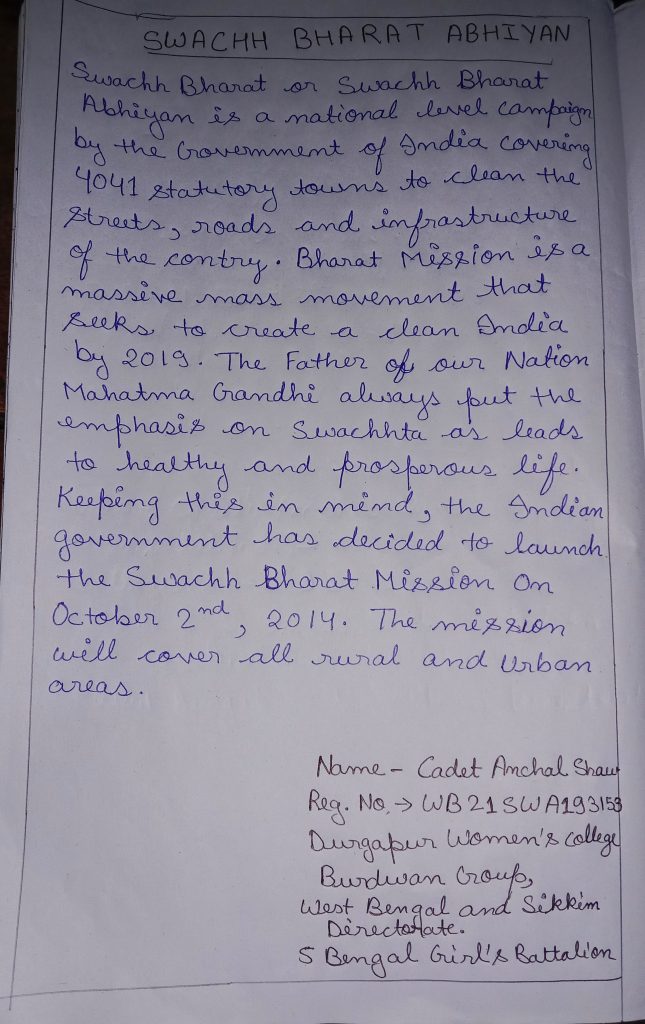 SWACHH BHARAT ABHIYAN
Swachh Bharat or Swachh Bharat
Abhiyan is a national level campaign
by the Government of India covering
4041 statutory towns to clean the
streets, roads and infrastructure
of the contry. Bharat Mission is a
massive mass movement that
seeks to create a clean India
by 2019. The Father of our Nation
Mahatma Gandhi always put the
emphasis on Swachhta as leads
to healthy and prosperous life.
Keeping this in mind, the Indian
government has decided to launch
the Swachh Bharat Mission On
October 2nd, 2014. The mission
will cover all rural and Urban
areas.
Name - Cadet Anchal Shaw
Reg. No. → WB21SWA193153
Durgapur Women's College
Burdwan Group,
West Bengal and Sikkim
Directotate.
5 Bengal Girl's Battalion